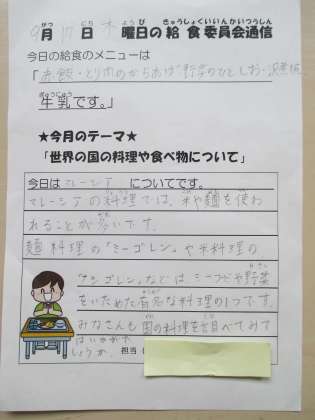 9月17日木曜日の給食委員会通信
今日の給食のメニューは
「赤飯・とり肉のからあげ・野菜のひとしお・沢煮椀
牛乳です。」
★今月のテーマ★
「世界の国の料理や食べ物について」
今日はマレーシアについてです。
マレーシアの料理では、米や麺を使わ
れることが多いです。
麺料理の「ミーゴレン」や米料理の
「ナシゴレン」などは、ミーフンや野菜
をいためた有名な料理の1つです。
みなさんも国の料理を食べてみて
はいかがで
しょうか。 担当